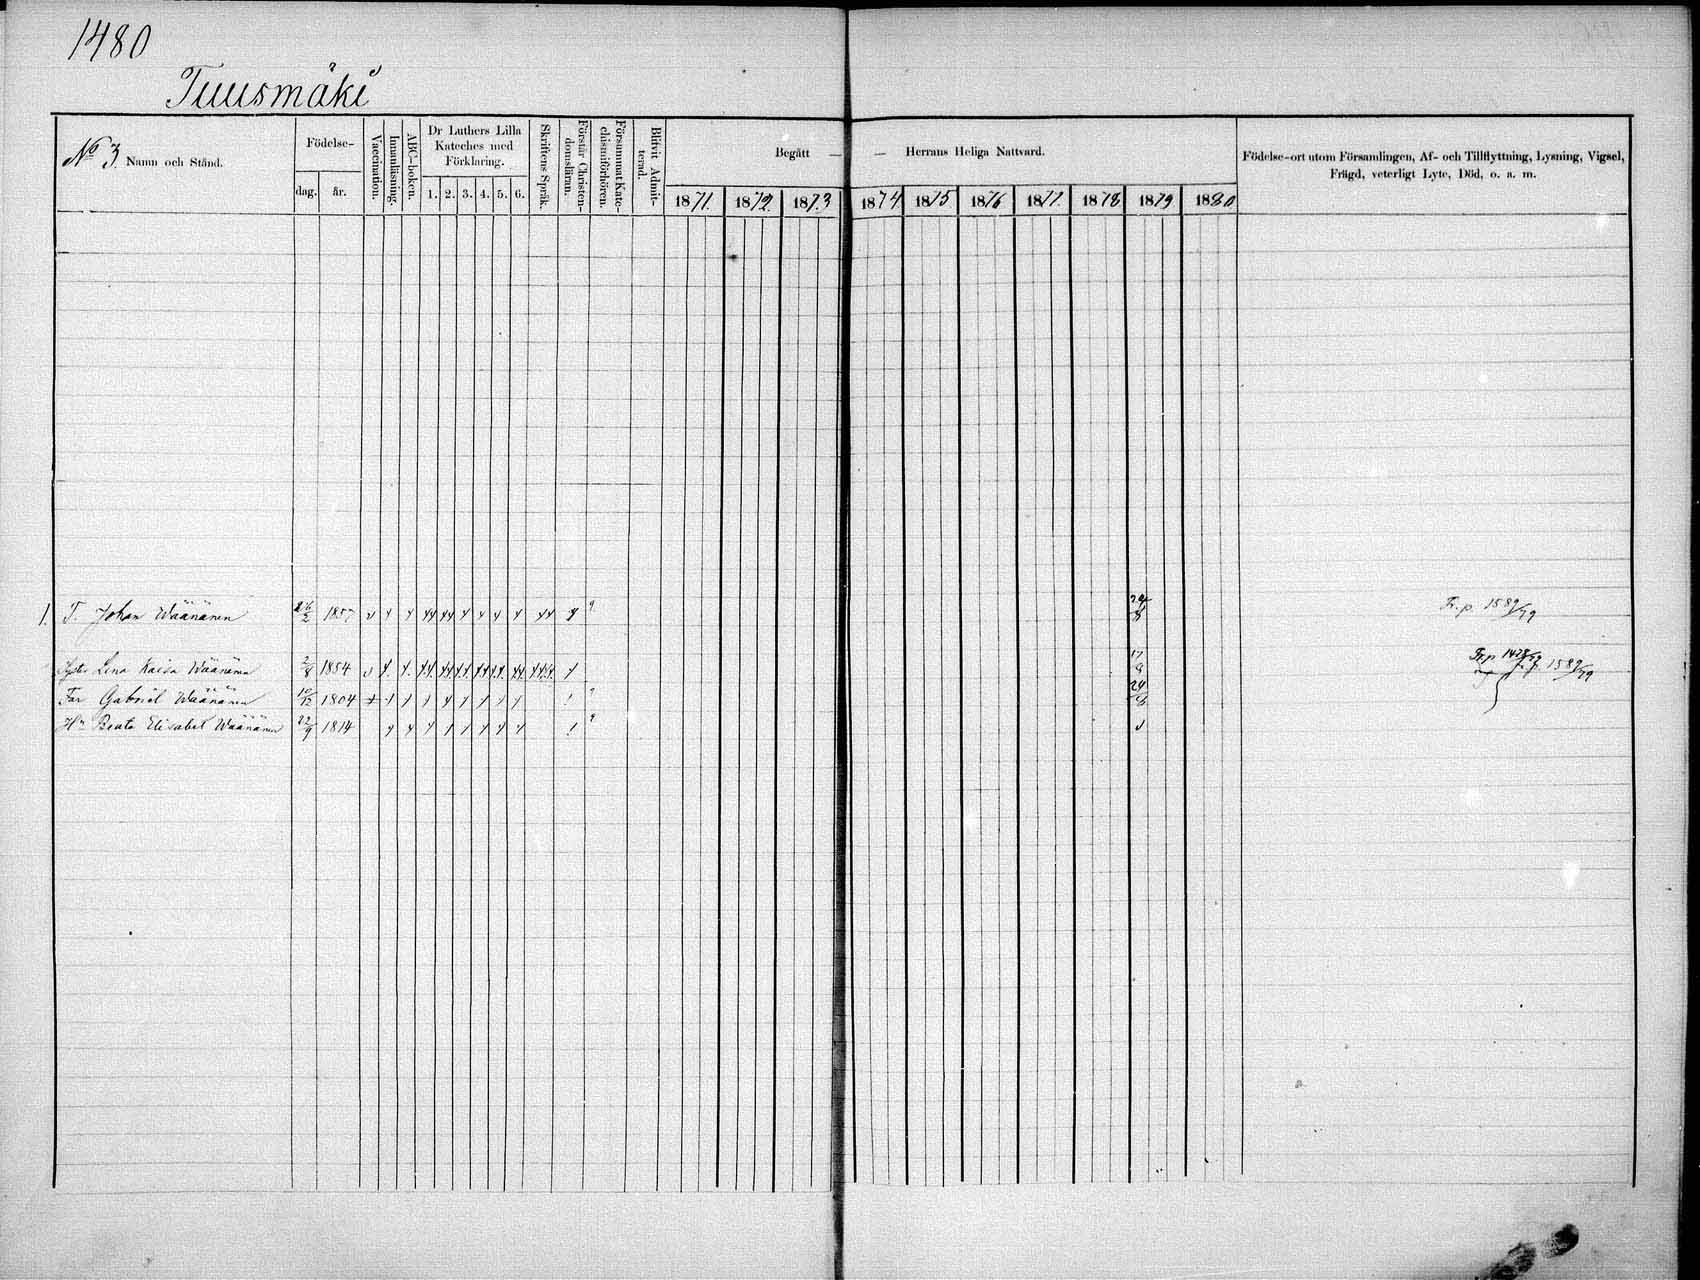 1480
Tuusmäki
No 3. Namn och Stånd.
Födelse-
dag. år.
Vaccination.
Innanläsning.
ABC-boken.
Dr Luthers Lilla
Kateches med
Förklaring.
1. 2. 3. 4. 5. 6.
Skriftens Språk.
Förstår Christen-
domsläran.
Försummat Kate-
chismiförhören.
Blifvit Admit-
terad.
Begått — — Herrans Heliga Nattvard.
1871. 1872. 1873 1874 1875 1876 1877 1878 1879 1880
Födelse-ort utom Församlingen, Af- och Tillflyttning, Lysning, Vigsel,
Frägd, veterligt Lyte, Död, o. s. m.
1. T. Johan Wäänänen 1857 24/8 Fr. p. 1589/79
Syster Lena Kaisa Wäänänen 2/8 1854 17/8 Fr. p 1478/79 1589/79
Far Gabriel Wäänänen 10/12 1804 24/8
Hu Beata Elisabet Wäänänen 22/9 1814